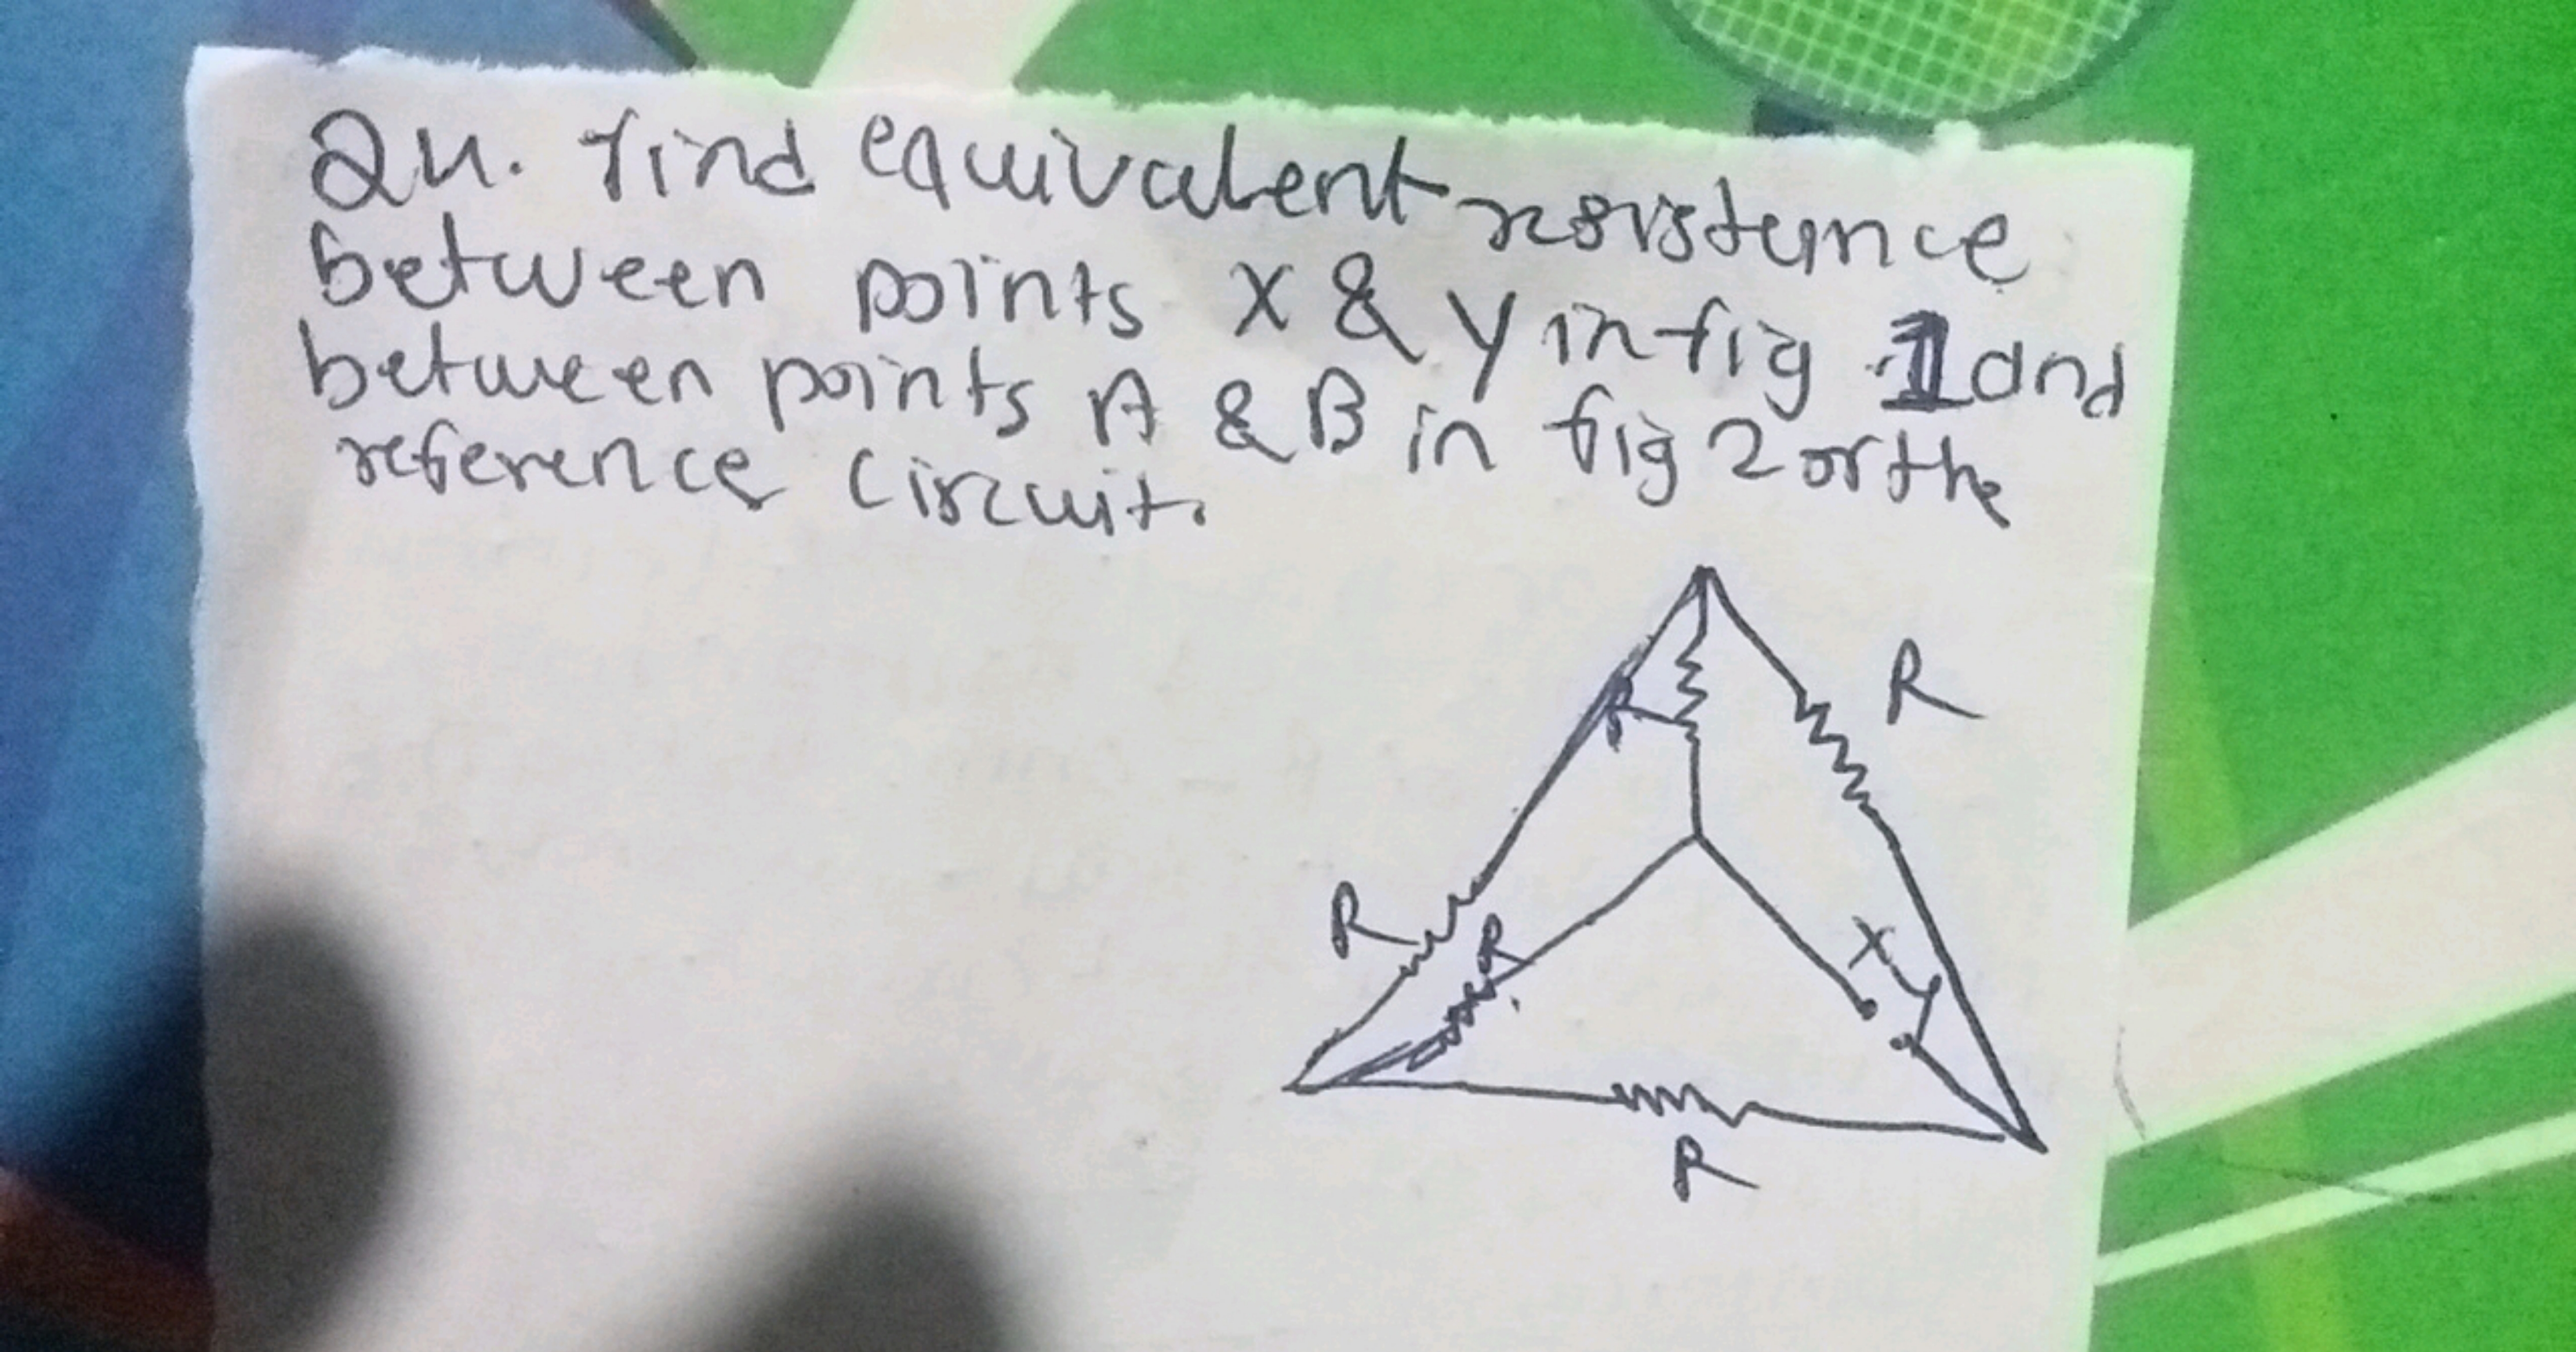 Qu. find equivalent resistance
between points X & Y in fig 1 and
between points A & B in fig 2 or the
reference circuit.
R
R
R
R
X
Y
R